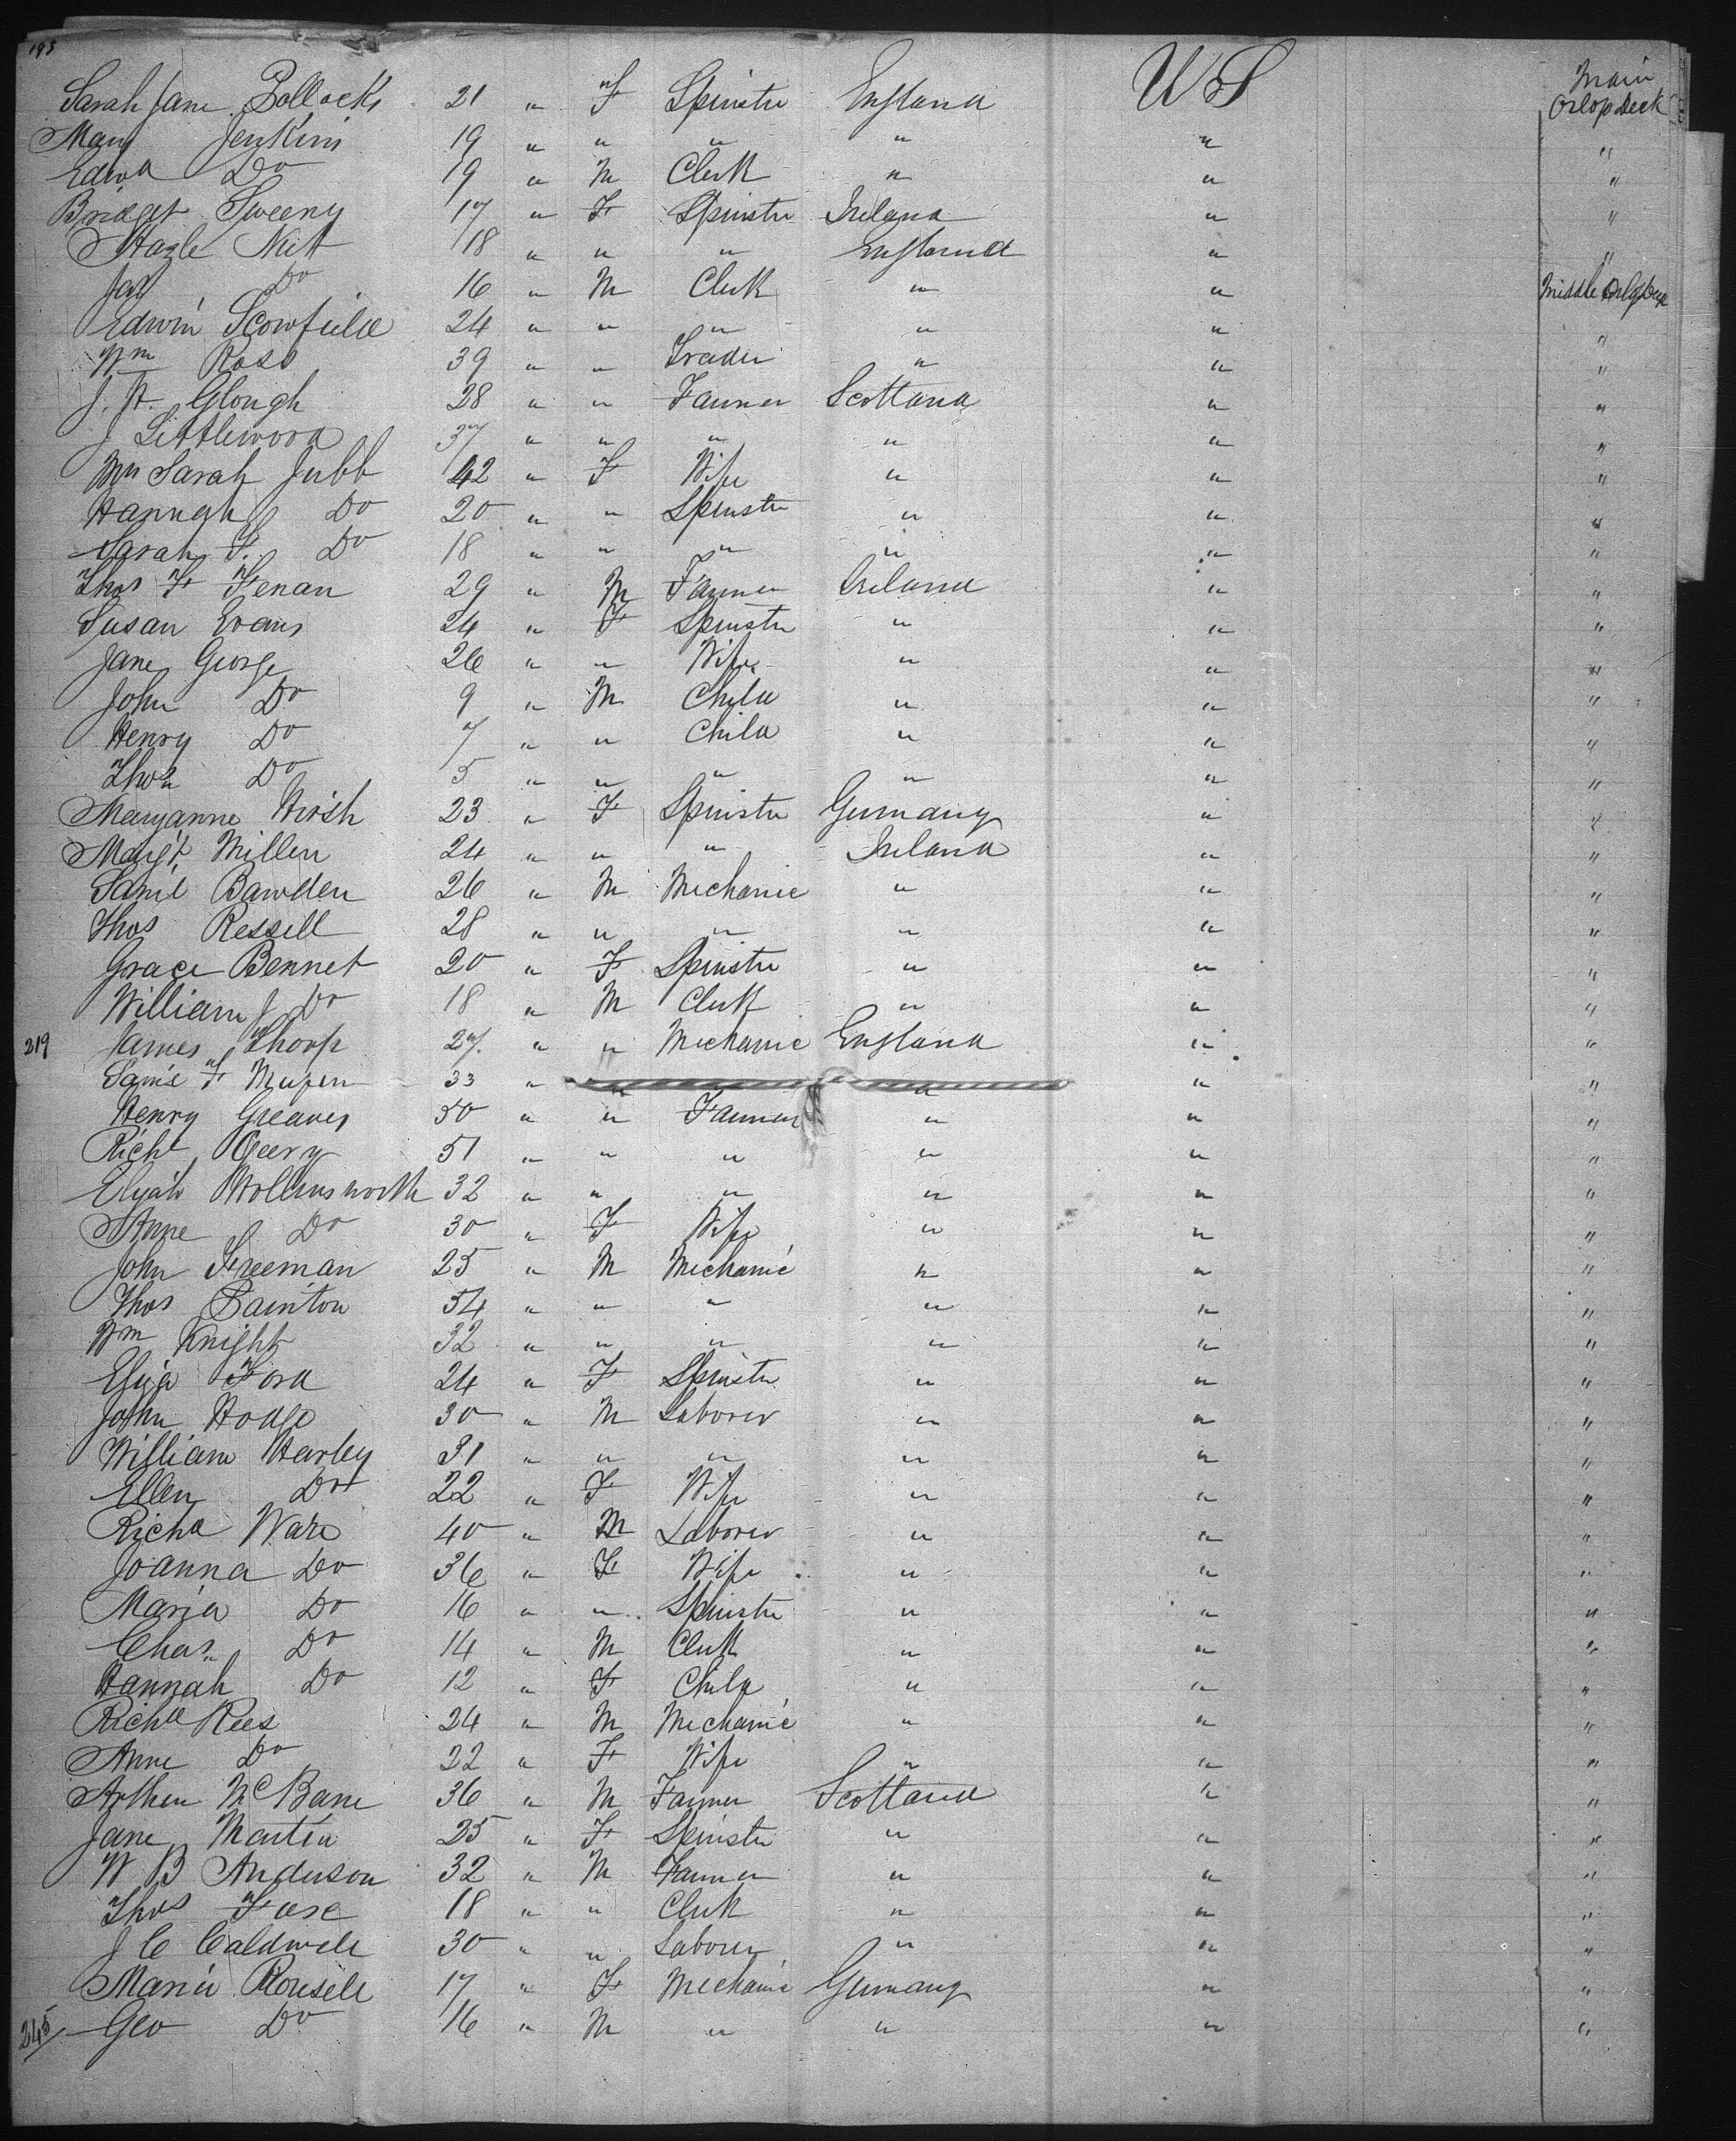 193
Sarah Jane Pollocks 21 " F Spinster England U S Main Orlop deck
Mary Jenkins 19 " " " " " "
Edwd Do 19 " M Clerk " " "
Bridget Sweeny 17 " F Spinster Ireland " "
Hazle Nutt 18 " " " England " "
Jas Do 16 " M Clerk " " Middle Orlop Deck
Edwin Scowfield 24 " " " " " "
Wm Ross 39 " " Trader " " "
J. H. Glough 28 " " Farmer Scotland " "
J Littlewood 37 " " " " " "
Mrs Sarah Jubb 42 " F Wife " " "
Hannah Do 20 " " Spinster " " "
Sarah F. Do 18 " " " " " "
Thos F Fenan 29 " M Farmer Ireland " "
Susan Evans 24 " F Spinster " " "
Jane George 26 " " Wife " " "
John Do 9 " M Child " " "
Henry Do 7 " " Child " " "
Thos Do 5 " " " " " "
Maryanne Hirsh 23 " F Spinster Germany " "
Margt Miller 24 " " " Ireland " "
Saml Bawden 26 " M Mechanic " " "
Thos Ressell 28 " " " " " "
Grace Bennet 20 " F Spinster " " "
William J Do 18 " M Clerk " " "
219 James Thorp 27 " " Mechanic England " "
Saml F 33 " " " " "
Henry Greaves 50 " " Farmer " " "
Richd Geery 51 " " " " " "
Elijah Hollinsworth 32 " " " " " "
Anne Do 30 " F Wife " " "
John Freeman 25 " M Mechanic " " "
Thos Sainton 54 " " " " " "
Wm Knight 32 " " " " " "
Eliza Ford 24 " F Spinster " " "
John Hodge 30 " M Laborer " " "
William Harley 31 " " " " " "
Ellen Do 22 " F Wife " " "
Richd Ware 40 " M Laborer " " "
Joanna Do 36 " F Wife " " "
Maria Do 16 " " Spinster " " "
Chas Do 14 " M Clerk " " "
Hannah Do 12 " F Child " " "
Richd Rees 24 " M Mechanic " " "
Anne Do 22 " F Wife " " "
Arther McBane 36 " M Farmer Scotland " "
Jane Martin 25 " F Spinster " " "
W B Anderson 32 " M Farmer " " "
Thos 18 " " Clerk " " "
J C Caldwell 30 " " Laborer " " "
Maria Rousell 17 " F Mechanic Germany " "
245 Geo Do 16 " M " " " "